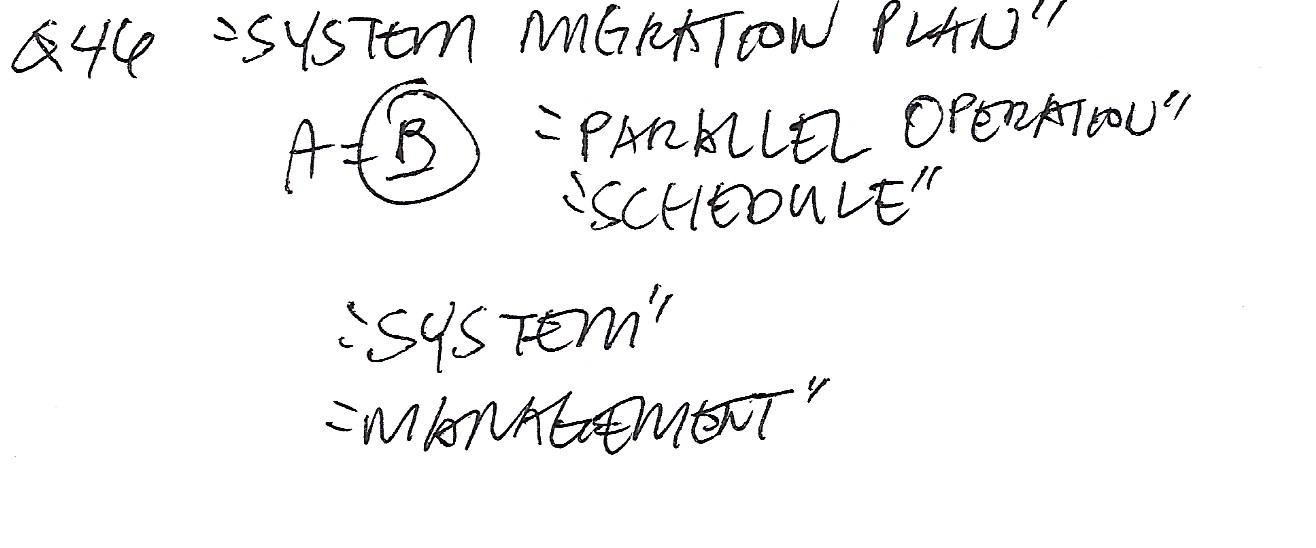 Q46 "SYSTEM MIGRATION PLAN"
A = B "PARALLEL OPERATION"
"SCHEDULE"
"SYSTEM"
"MANAGEMENT"